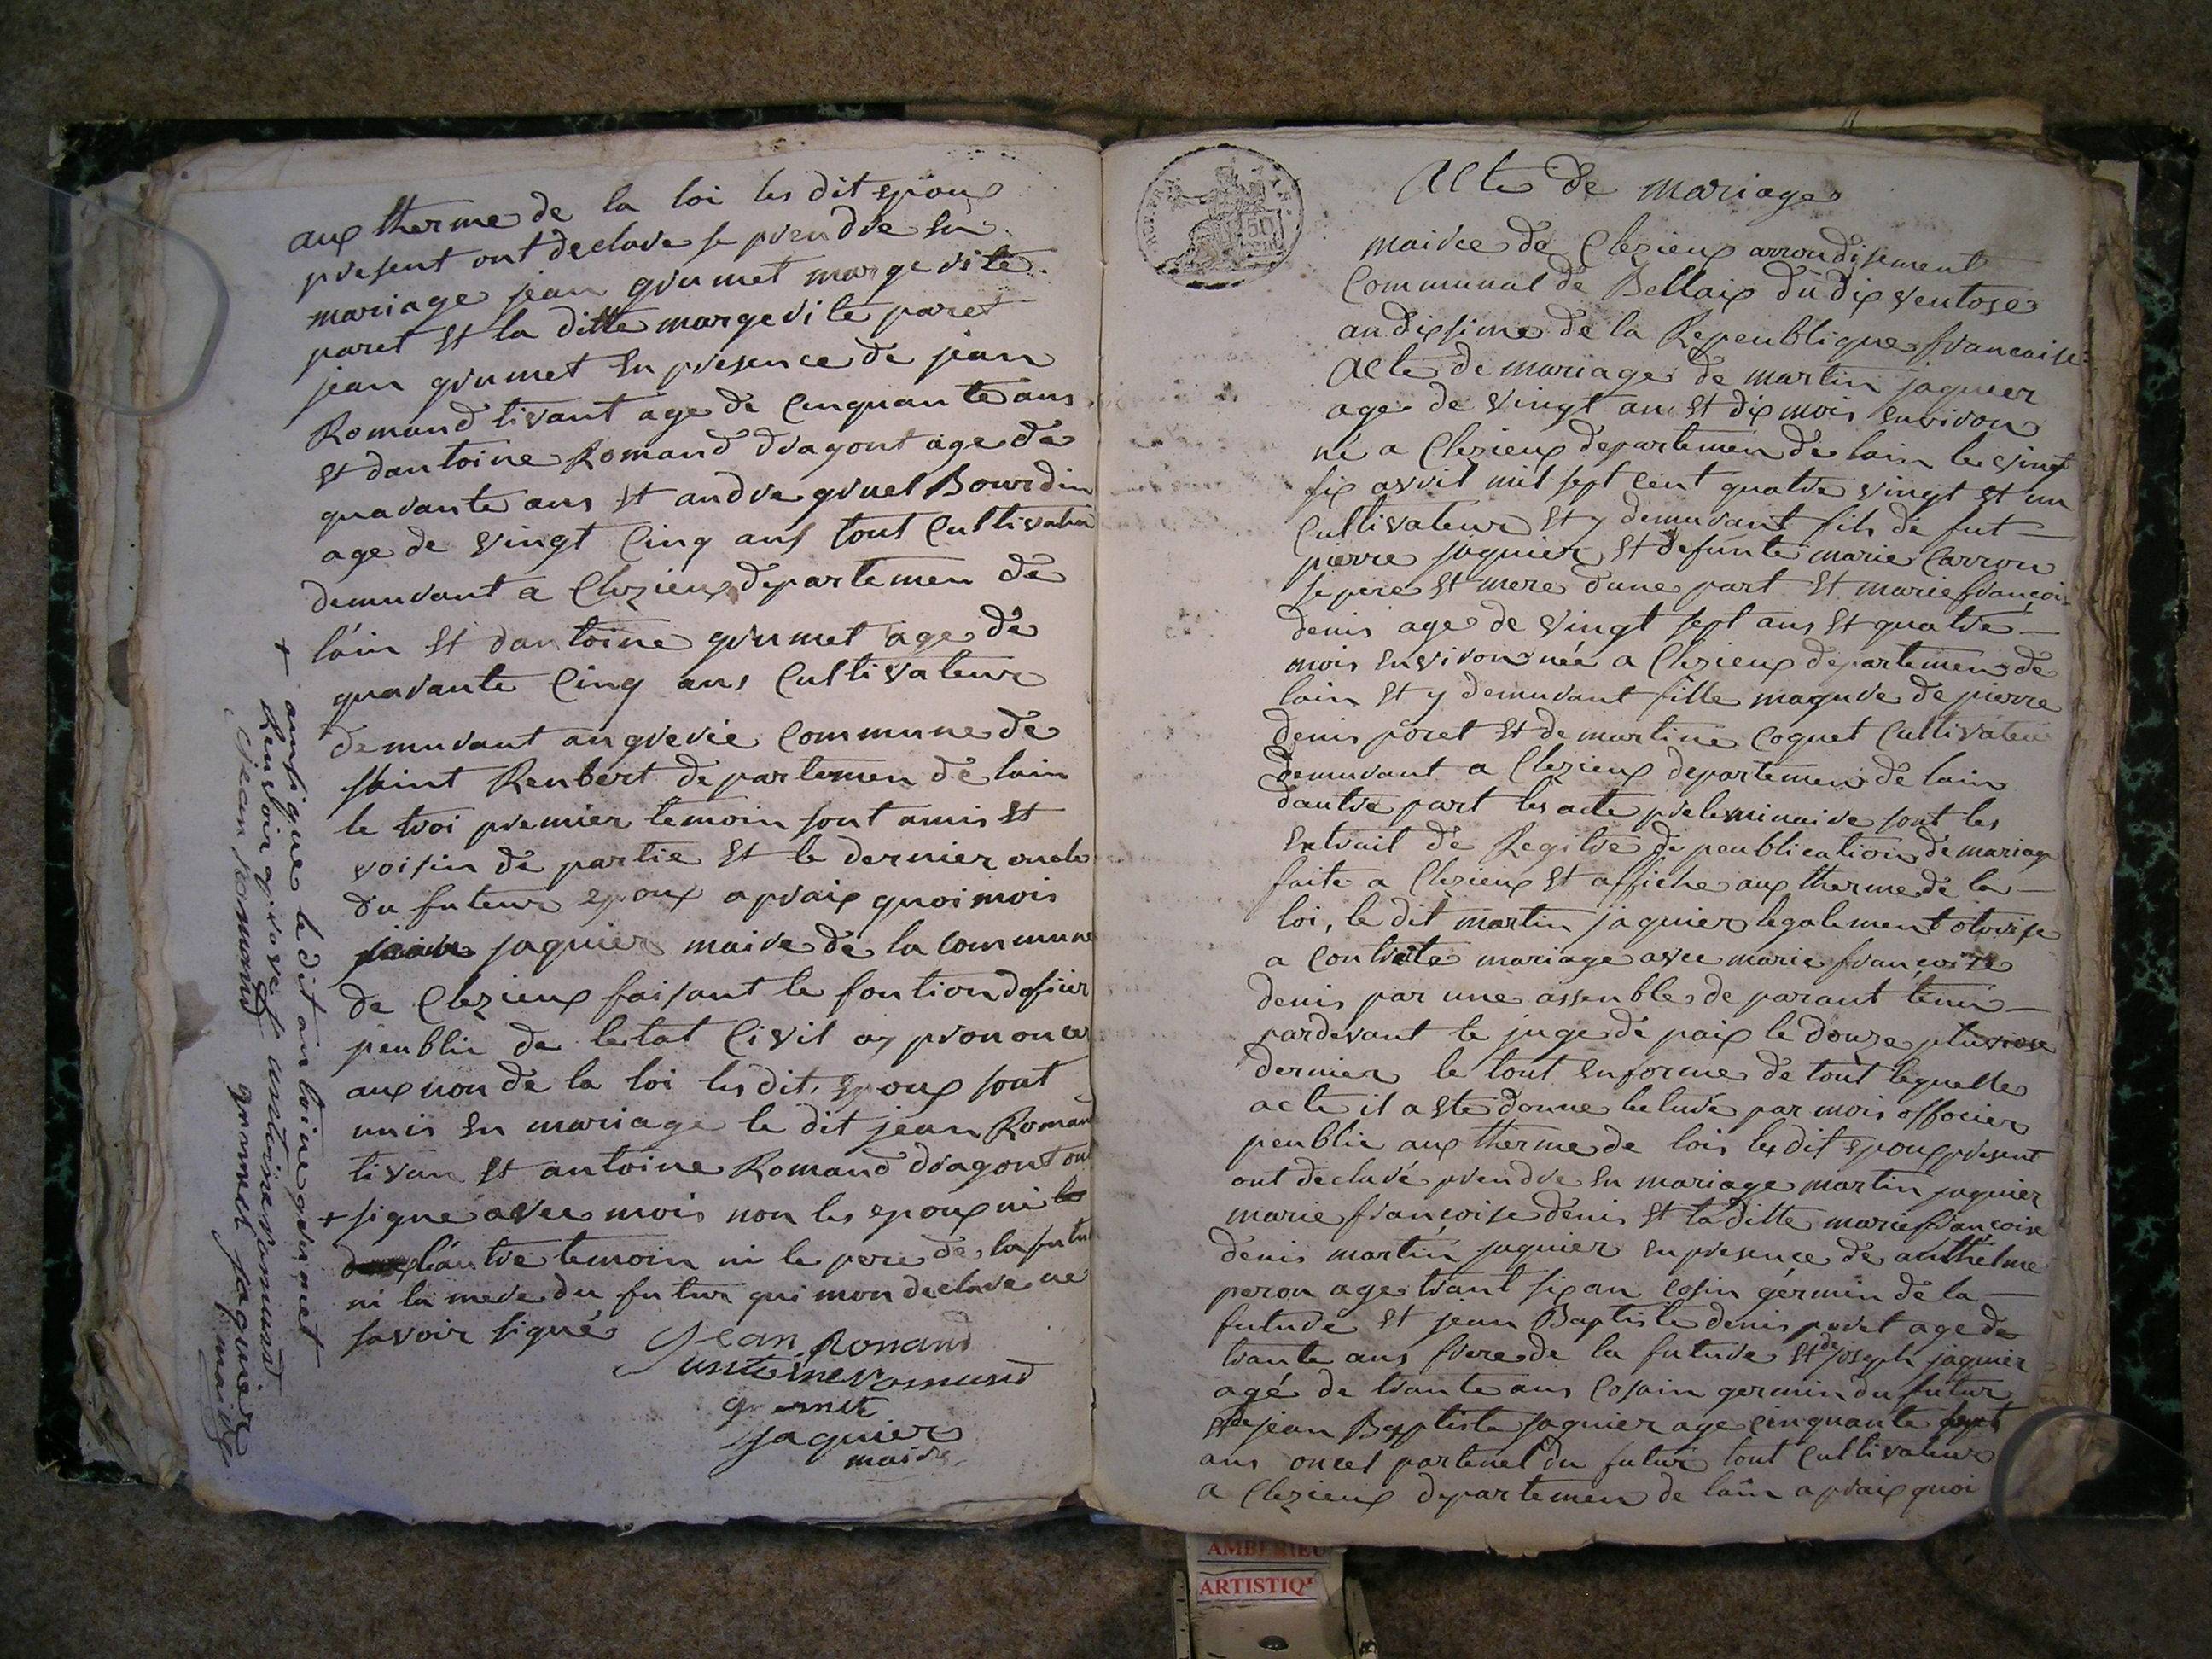 aux therme de la loi les dit epoux
present ont declare se prendre en
mariage jean grumet margerite
paret et la ditte margerite paret
jean grumet en presence de jean
Romand tivant age de cinquante ans
et dantoine Romand dragont age de
quarante ans et andre gruel Bourdin
age de vingt cinq ans tout cultivateur
demurant a Clezieux departemen de
láin et dantoine grumet age de
quarante cinq ans cultivateur
demurant angrevie commune de
saint Renbert departemen de lain
le troi premier temoin sont amis et
voisin de partie et le dernier oncle
du futeur epoux apraix quoi mois
jaquier maire de la commune
de Clezieux faisant le fontion dofisier
peublic de letat Civil ay prononcer
aux non de la loi les dit epoux sont
unis en mariage le dit jean Romand
tivan et antoine Romand dragont on
+ signe avec mois non les epoux ni
lautre temoin ni le pere de la futu
ni la mere du futur qui mon declare ne
savoir signé
Jean Romand
antoine romand
grumet
Jaquier
maire
+ ansi que le dit antoine grumet
Renvoir aprové antoine romand
jean romand grumet jaquier
maire
Acte de mariage
50
mairie de Clezieux arrondisement
Communal de Bellaix du dix ventose
an dixsime de la Repeublique francaise
Acte de mariage de martin jaquier
age de vingt an et dix mois environ
né a Clezieux departemen de lain le vingt
six avril mil sept cent quatre vingt et un
cultivateur et y demurant fils de fut
pierre jaquier et defunte marie Carron
se pere et mere dune part et marie françoi
denis age de vingt sept ans et quatre
mois environ née a Clezieux departemen de
lain et y demurant fille magure de pierre
denis póret et de martine Coquet Cultivateu
demurant a Clezieux departemen de lain
dautre part les acte preleminaire sont les
Extrait de Regitre de peublication de mariage
faite a Clezieux et affiche aux therme de la
loi, le dit martin jaquier legalement otorise
a contrate mariage avec marie françoise
denis par une assenble de parant tenu
pardevant le juge de paix le douze pluviose
dernier le tout enforme de tout lequelle
acte il a ete donne lecture par mois officier
peublic aux therme de lois les dit epoux present
ont declaré prendre en mariage martin jaquier
marie françoise denis et la ditte marie françoise
denis martin jaquier en presence de anthelme
peron age trant six an cosin gérmin de la
future et jean Baptiste denis poret age de
trante ans frere de la future et de joseph jaquier
agé de trante ans cosain germin du futur
et de jean Baptiste jaquier age cinquante sept
ans oncel partenel du futur tout cultivateur
a Clezieux departemen de laîn apraix quoi
AMBERIEU
ARTISTIQ